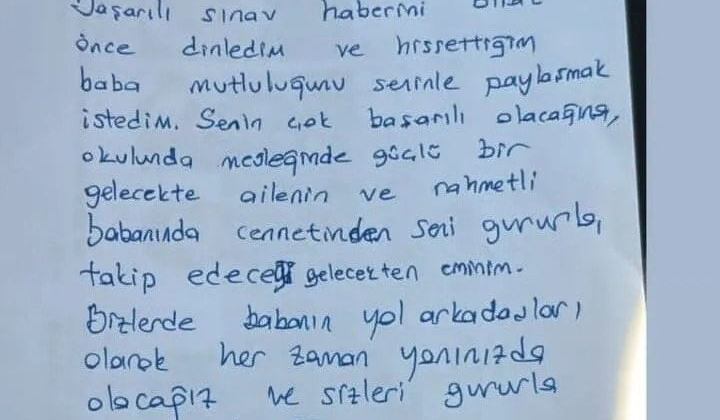 Başarılı sınav haberini
önce dinledim ve hissettiğim
baba mutluluğunu seninle paylaşmak
istedim. Senin çok başarılı olacağına,
okulunda mesleğinde güçlü bir
gelecekte ailenin ve rahmetli
babanında cennetinden seni gururla,
takip edeceği gelecekten eminim.
Bizlerde babanın yol arkadaşları
olarak her zaman yanınızda
olacağız ve sizleri gururla